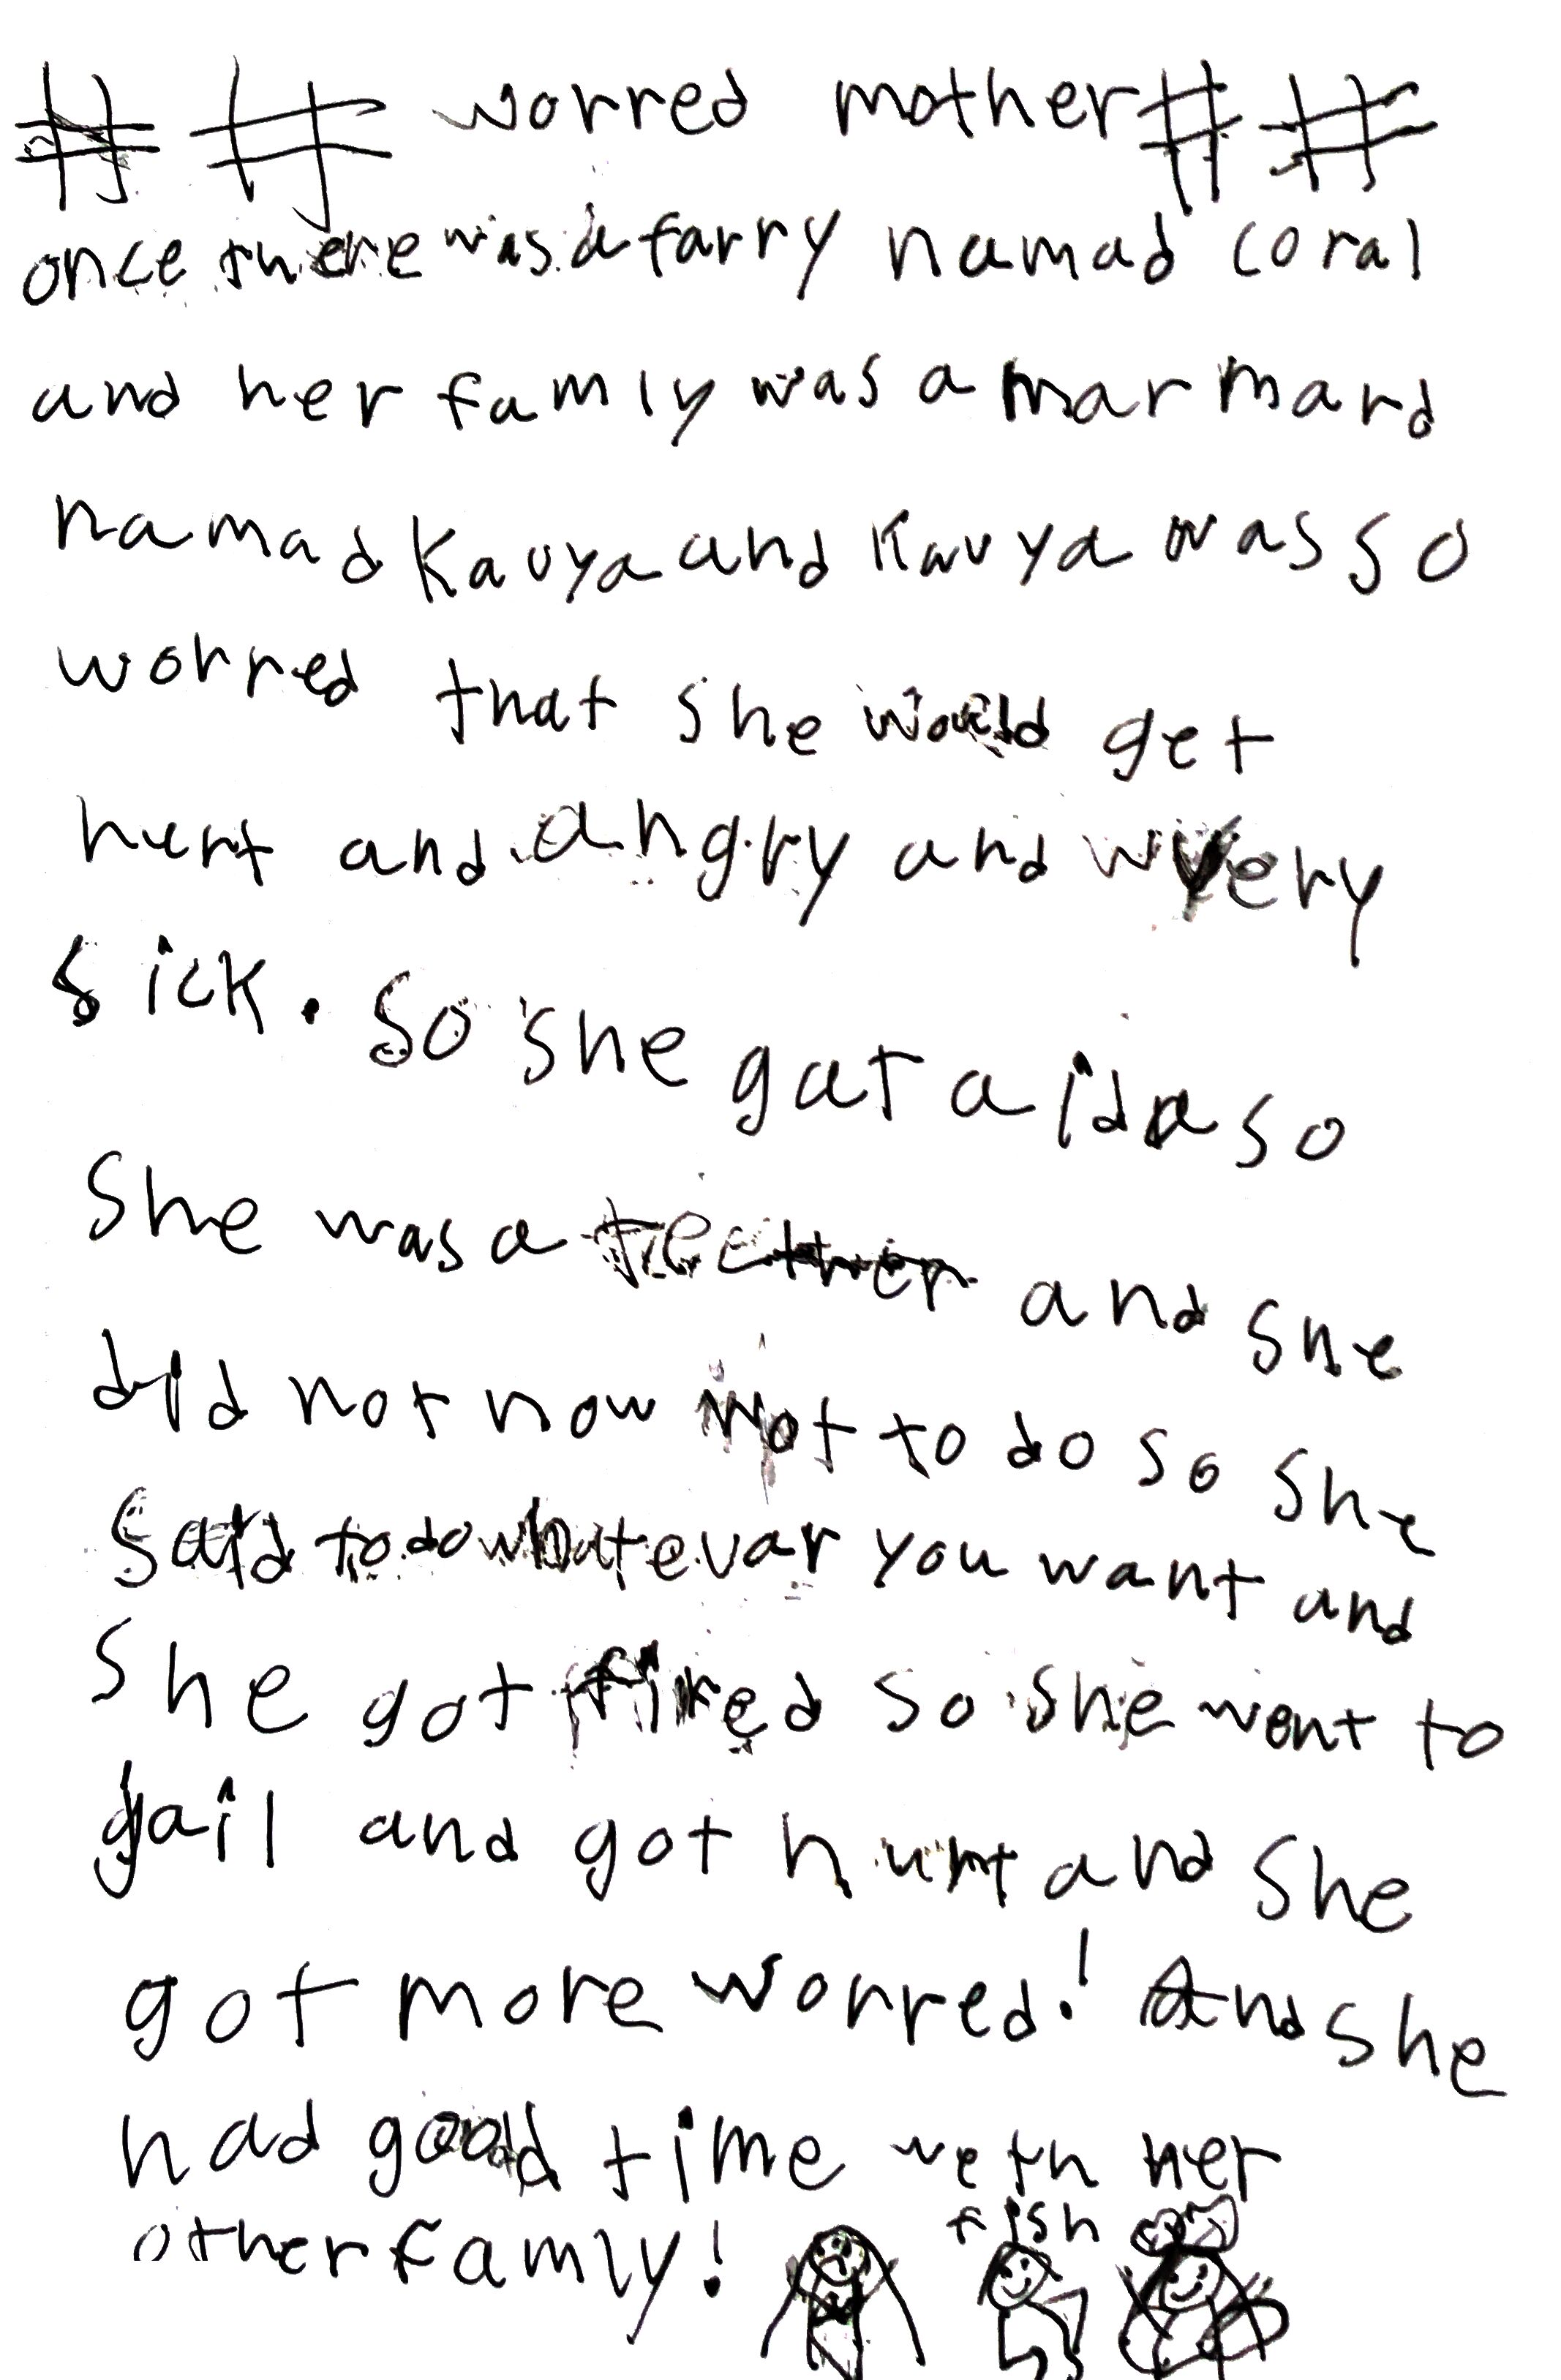 ## worred mother##
once there was a farry namad coral
and her famly was a marmard
namad Kavya and Kavya was so
worred that she would get
hurt and angry and very
sick. So she gat a ida so
She was a teether and she
did not now wot to do so she
said to do whatevar you want and
She got fired so she went to
jail and got hurt and she
got more worred! And she
had good time weth her
other famly!
fish